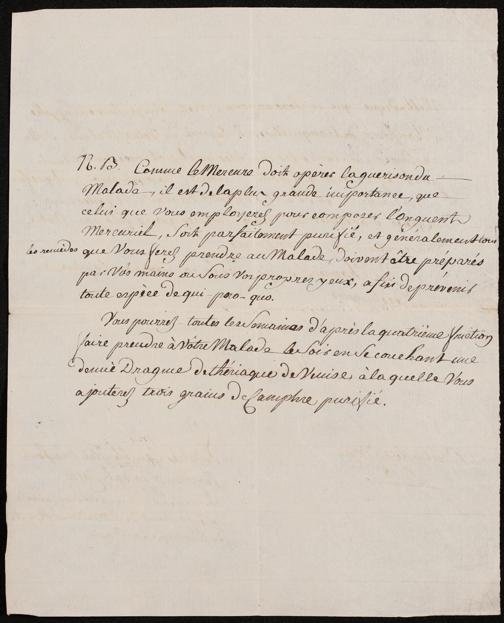 N. B. Comme le Mercure doit opérer la guerison du
Malade, il est de la plus grande importance, que
celui que vous employerez pour composer l'onguent
Mercuriel, soit parfaitement purifié, et généralement tous
les remedes que Vous ferez prendre au Malade, doivent être préparés
par Vos mains ou sous Vos propres yeux, afin de prévenir
toute espèce de qui pro-quo.
Vous pourrez toutes les semaines d'après la quatrième friction
faire prendre à Votre Malade le soir en se couchant une
demie Dragme de thériaque de Venise, à laquelle Vous
ajouterez trois grains de Camphre purifié.